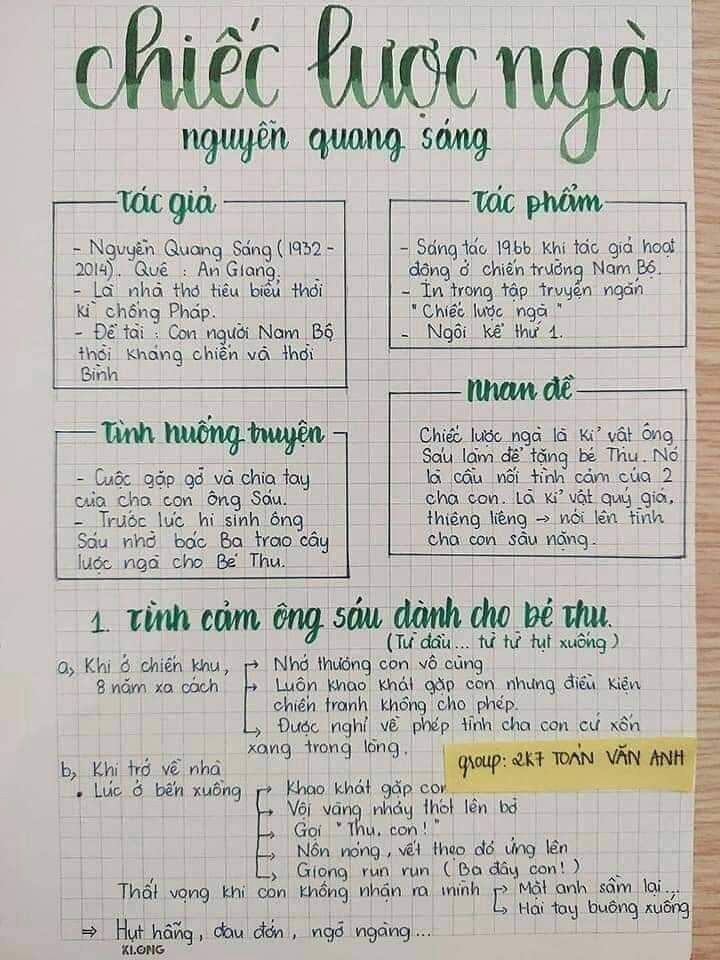 chiếc lược ngà
nguyễn quang sáng
Tác giả
- Nguyễn Quang Sáng (1932 -
2014). Quê : An Giang.
- Là nhà thơ tiêu biểu thời
kì chống Pháp.
- Đề tài : Con người Nam Bộ
thời kháng chiến và thời
Bình
Tác phẩm
- Sáng tác 1966 khi tác giả hoạt
động ở chiến trường Nam Bộ.
- In trong tập truyện ngắn
"Chiếc lược ngà"
- Ngôi kể thứ 1.
Tình huống truyện
- Cuộc gặp gỡ và chia tay
của cha con ông Sáu.
- Trước lúc hi sinh ông
Sáu nhờ bác Ba trao cây
lược ngà cho Bé Thu.
Nhan đề
Chiếc lược ngà là kỉ vật ông
Sáu làm để tặng bé Thu. Nó
là cầu nối tình cảm của 2
cha con. Là kỉ vật quý giá,
thiêng liêng → nói lên tình
cha con sâu nặng.
1. Tình cảm ông sáu dành cho bé thu.
(Từ đầu... từ từ tụt xuống)
a, Khi ở chiến khu,
8 năm xa cách
→ Nhớ thương con vô cùng
→ Luôn khao khát gặp con nhưng điều kiện
chiến tranh không cho phép.
→ Được nghỉ về phép tình cha con cứ xốn
xang trong lòng.
group: 2K7 TOÁN VĂN ANH
b, Khi trở về nhà
• Lúc ở bến xuồng
→ Khao khát gặp con
→ Vội vàng nhảy thót lên bờ
→ Gọi "Thu, con!"
→ Nôn nóng, vết thẹo đỏ ửng lên
→ Giọng run run (Ba đây con!)
Thất vọng khi con không nhận ra mình → Mặt anh sầm lại...
→ Hai tay buông xuống
⇒ Hụt hẫng, đau đớn, ngỡ ngàng...
KLONG